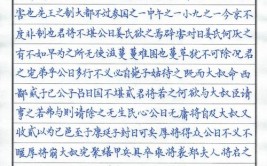 害也先王之制大都不过参国之一中五之一小九之一今京不
度非制也君将不堪公曰姜氏欲之焉辟害对曰姜氏何厌之
有不如早为之所无使滋蔓蔓难图也蔓草犹不可除况君
之宠弟乎公曰多行不义必自毙子姑待之既而大叔命西
鄙贰于己公子吕曰国不堪贰君将若之何欲与大叔臣请
事之若弗与则请除之无生民心公曰无庸将自及大叔又
收贰以为己邑至于廪延子封曰可矣厚将得众公曰不义不
暱厚将崩大叔完聚缮甲兵具卒乘将袭郑夫人将启之